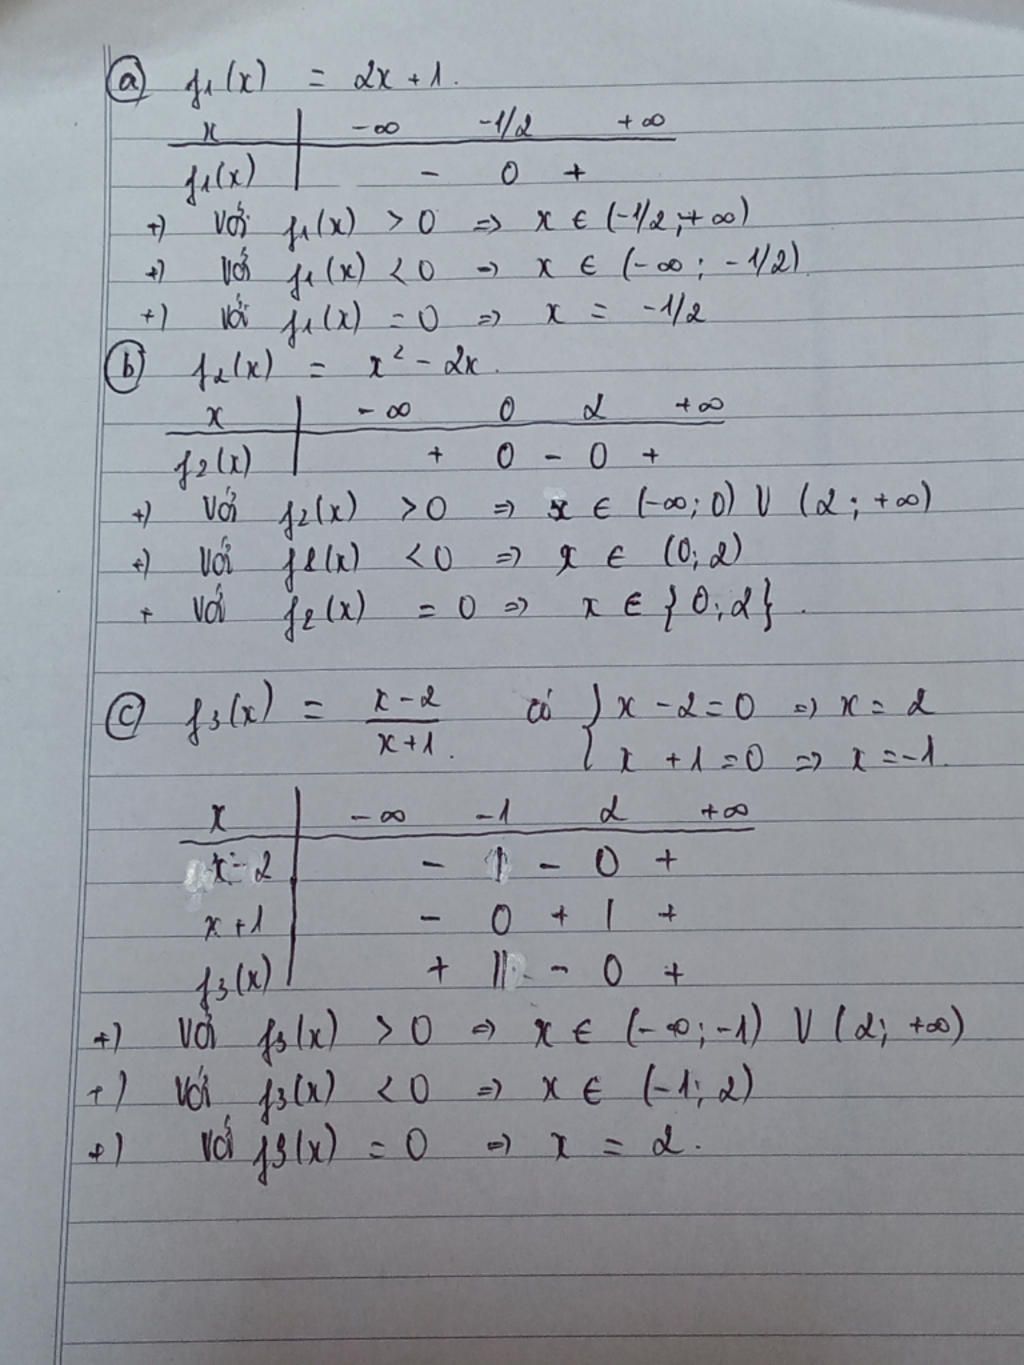 a) f1(x) = 2x+1.
x | -∞ -1/2 +∞
f1(x) | - 0 +
+) với f1(x) > 0 => x ∈ (-1/2; +∞)
+) với f1(x) < 0 => x ∈ (-∞; -1/2)
+) với f1(x) = 0 => x = -1/2
b) f2(x) = x² - 2x.
x | -∞ 0 2 +∞
f2(x) | + 0 - 0 +
+) với f2(x) > 0 => x ∈ (-∞; 0) U (2; +∞)
+) với f2(x) < 0 => x ∈ (0; 2)
+ với f2(x) = 0 => x ∈ {0; 2}.
c) f3(x) = (x-2)/(x+1). có { x - 2 = 0 => x = 2
x + 1 = 0 => x = -1.
x | -∞ -1 2 +∞
x-2 | - | - 0 +
x+1 | - 0 + | +
f3(x) | + || - 0 +
+) với f3(x) > 0 => x ∈ (-∞; -1) U (2; +∞)
+) với f3(x) < 0 => x ∈ (-1; 2)
+) với f3(x) = 0 => x = 2.